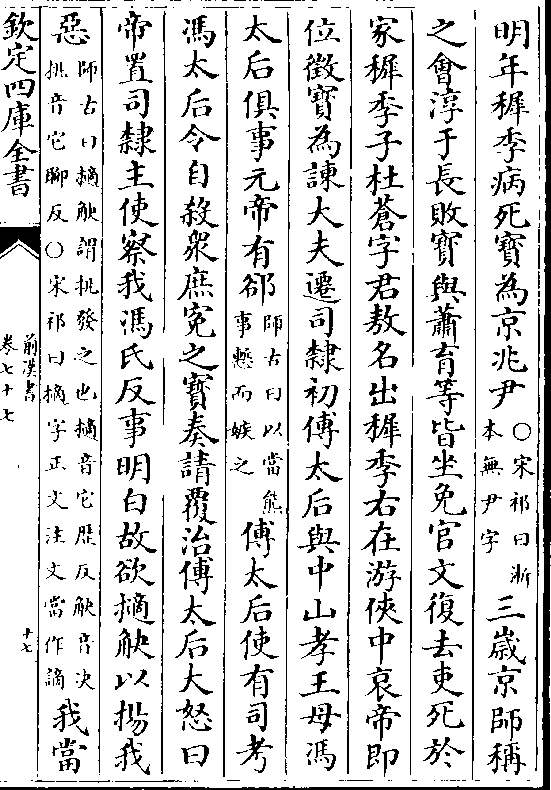 明年穉季病死寶為京兆尹○宋祁曰浙本無尹字三歲京師稱
之會淳于長敗寶與蕭育等皆坐免官文復去吏死於
家穉季子杜蒼字君敖名出穉季右在游俠中哀帝即
位徵寶為諫大夫遷司隸初傅太后與中山孝王母馮
太后俱事元帝有郤師古曰以當熊事慙而嫉之傅太后使有司考
馮太后令自殺衆庶寃之寶奏請覆治傅太后大怒曰
帝置司隸主使察我馮氏反事明白故欲擿觖以揚我
惡師古曰擿觖謂挑發之也擿音它歷反觖音决挑音它聊反○宋祁曰擿字正文注文當作謫我當
欽定四庫全書
前漢書
卷七十七
十七